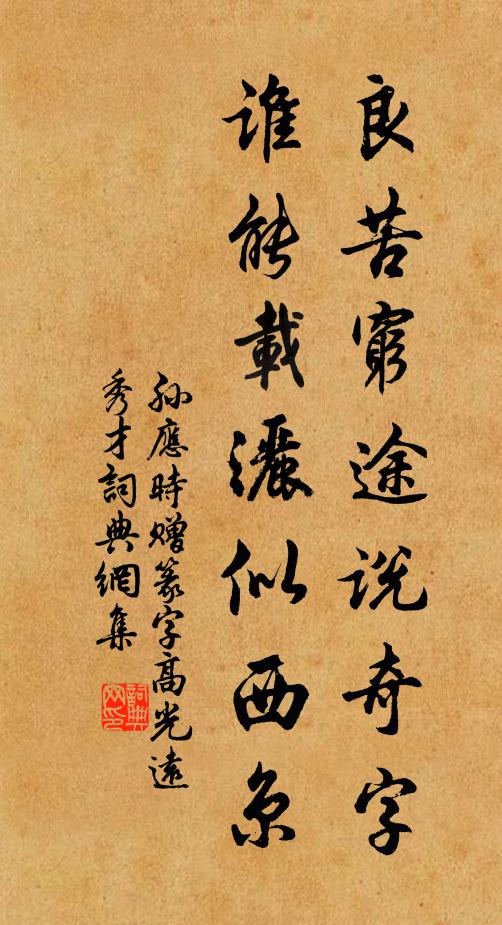 良苦窮途説奇字
谁能載灑似西京
孙應時赠篆字高光遠
秀才詞典網集
詞典
网印